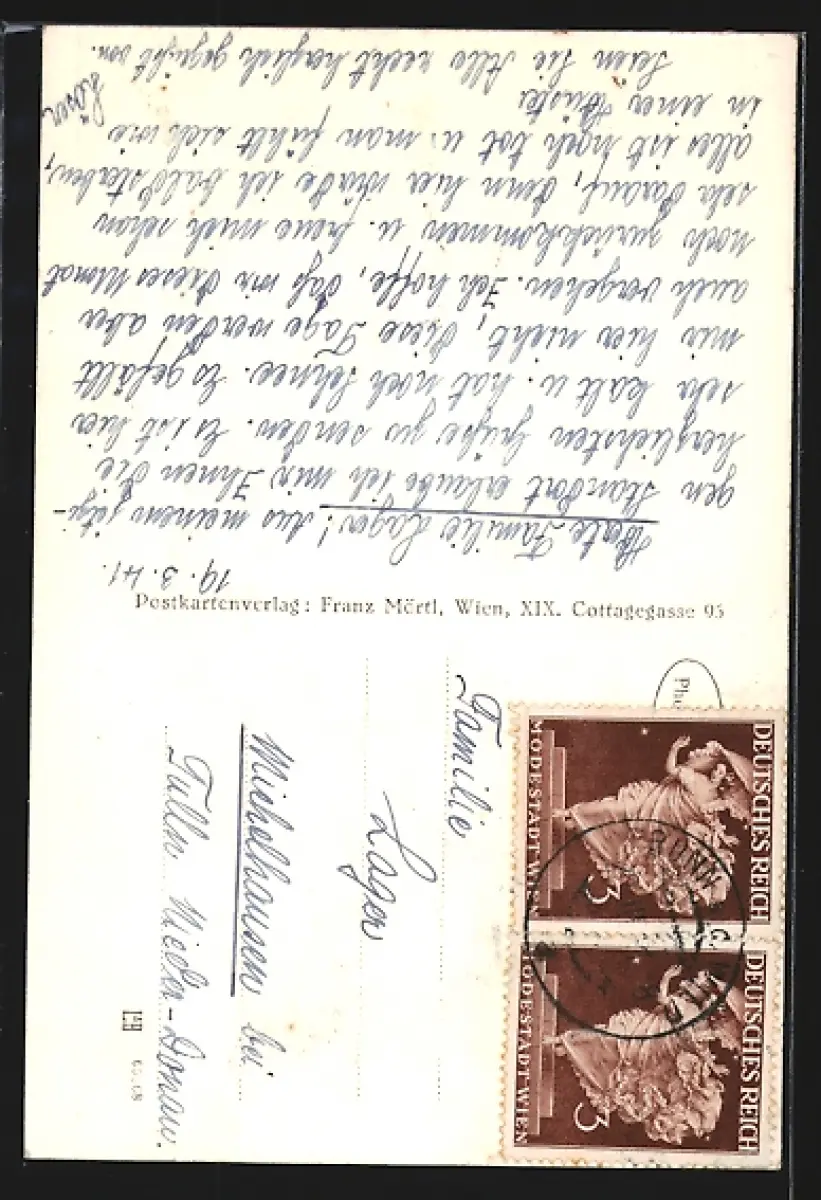 19. 3. 41.
Werte Familie Lager! Aus meinem jetzi-
gen Standort erlaube ich mir Ihnen die
herzlichsten Grüße zu senden. Es ist hier
sehr kalt u. hat noch Schnee. Es gefällt
mir hier nicht, diese Tage werden aber
auch vergehen. Ich hoffe, daß wir dieses Monat
noch zurückkommen u. freue mich schon
sehr darauf, denn hier würde ich bald sterben,
alles ist noch tot u. man fühlt sich wie
in einer Wüste.
Seien Sie Alle recht herzlich gegrüßt von
Postkartenverlag: Franz Mörtl, Wien, XIX. Cottagegasse 95
Familie
Lager
Michelhausen bei
Tulln Nieder-Donau.
DEUTSCHES REICH
3
MODESTADT WIEN
DEUTSCHES REICH
3
MODESTADT WIEN